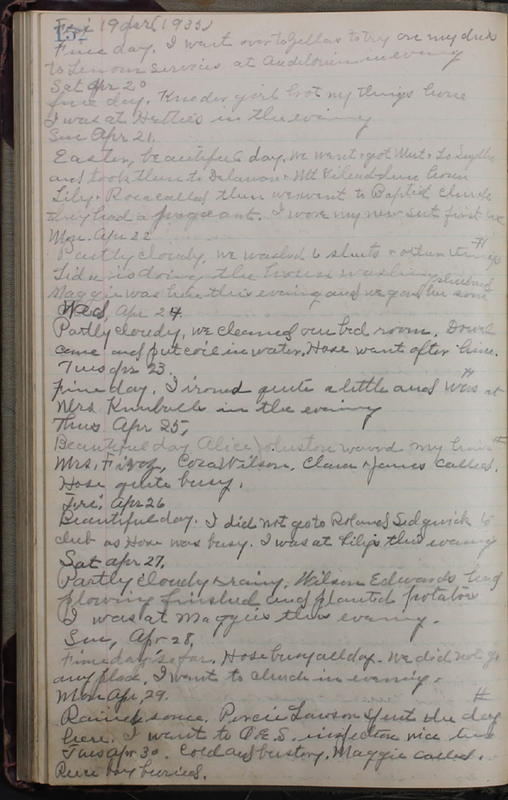 152
Fri 19 Apr (1935)
Fine day. I went over to Zellas to try on my dress
to Lenten services at Auditorium in evening
Sat Apr 20
fine day. girl got my things home
I was at Hettie's in the evening
Sun Apr 21.
Easter, beautiful day, we went & got
and took them to Delaware & Mt Gilead
Lily & Rosa called then we went to Baptist church
they had a pageant. I wore my new suit first time
Mon. Apr 22
Partly cloudy, we washed 6 sheets & other things #
is doing the house washing
Maggie was here this evening and we gave her some
Wed, Apr 24.
Partly cloudy, we cleaned our bed room.
came and put coil in water, Hose went after him.
Tues Apr 23.
fine day. I ironed quite a little and was at #
Mrs Kimball in the evening
Thus Apr 25,
Beautiful day Alice Johnston waved my hair #
Mrs. Cora Wilson, Clara & James called.
Hose quite busy.
Fri, Apr 26
Beautiful day. I did not go to Sidgwick to
club as Hose was busy. I was at Lily's this evening
Sat Apr 27.
Partly cloudy & rainy, Wilson Edwards
plowing finished and planted potatoes
I was at Maggie's this evening.
Sun, Apr 28,
Fine day so far, Hose busy all day. we did not go
any place. I went to church in evening.
Mon Apr, 29. #
Rained some. Lawson spent the day
here. I went to O.E.S. inspection nice time
Tues Apr 30. Cold and . Maggie called.
boy buried.